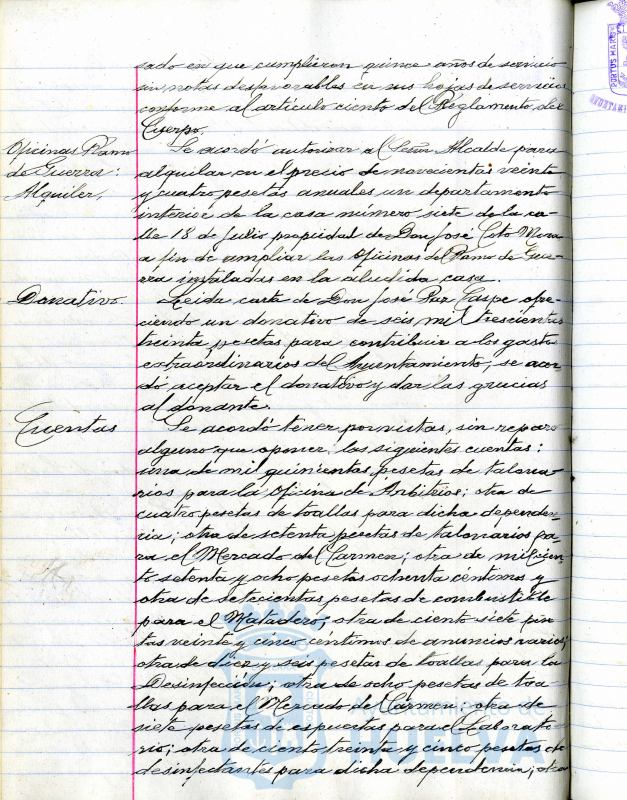 sado en que cumplieron quince años de servicio
sin notas desfavorables en sus hojas de servicios
conforme al artículo ciento del Reglamento del
Cuerpo.
Oficinas Ramo
de Guerra:
Alquiler,
Se acordó autorizar al Señor Alcalde para
alquilar en el precio de novecientas veinte
y cuatro pesetas anuales un departamento
interior de la casa número siete de la ca-
lle 18 de Julio propiedad de Don José Coto Mora
a fin de ampliar las Oficinas del Ramo de Gue-
rra instaladas en la aludida casa.
Donativo.
Leida carta de Don José Paz Gaspe ofre-
ciendo un donativo de seis mil trescientas
treinta pesetas para contribuir a los gastos
extraordinarios del Ayuntamiento, se acor-
dó aceptar el donativo y dar las gracias
al donante.
Cuentas
Se acordó tener por vistas, sin reparo
alguno que oponer, las siguientes cuentas:
una de mil quinientas pesetas de talona-
rios para la Oficina de Arbitrios; otra de
cuatro pesetas de toallas para dicha dependen-
cia; otra de setenta pesetas de talonarios pa-
ra el Mercado del Carmen; otra de mil cien-
to setenta y ocho pesetas ochenta céntimos y
otra de setecientas pesetas de combustible
para el Matadero; otra de ciento siete pese-
tas veinte y cinco céntimos de anuncios varios;
otra de diez y seis pesetas de toallas para la
Desinfección; otra de ocho pesetas de toa-
llas para el Mercado del Carmen; otra de
siete pesetas de espuertas para el Laborato-
rio; otra de ciento treinta y cinco pesetas de
desinfectantes para dicha dependencia; otra
Ayuntamiento de
HUELVA
PORTUS MARIS